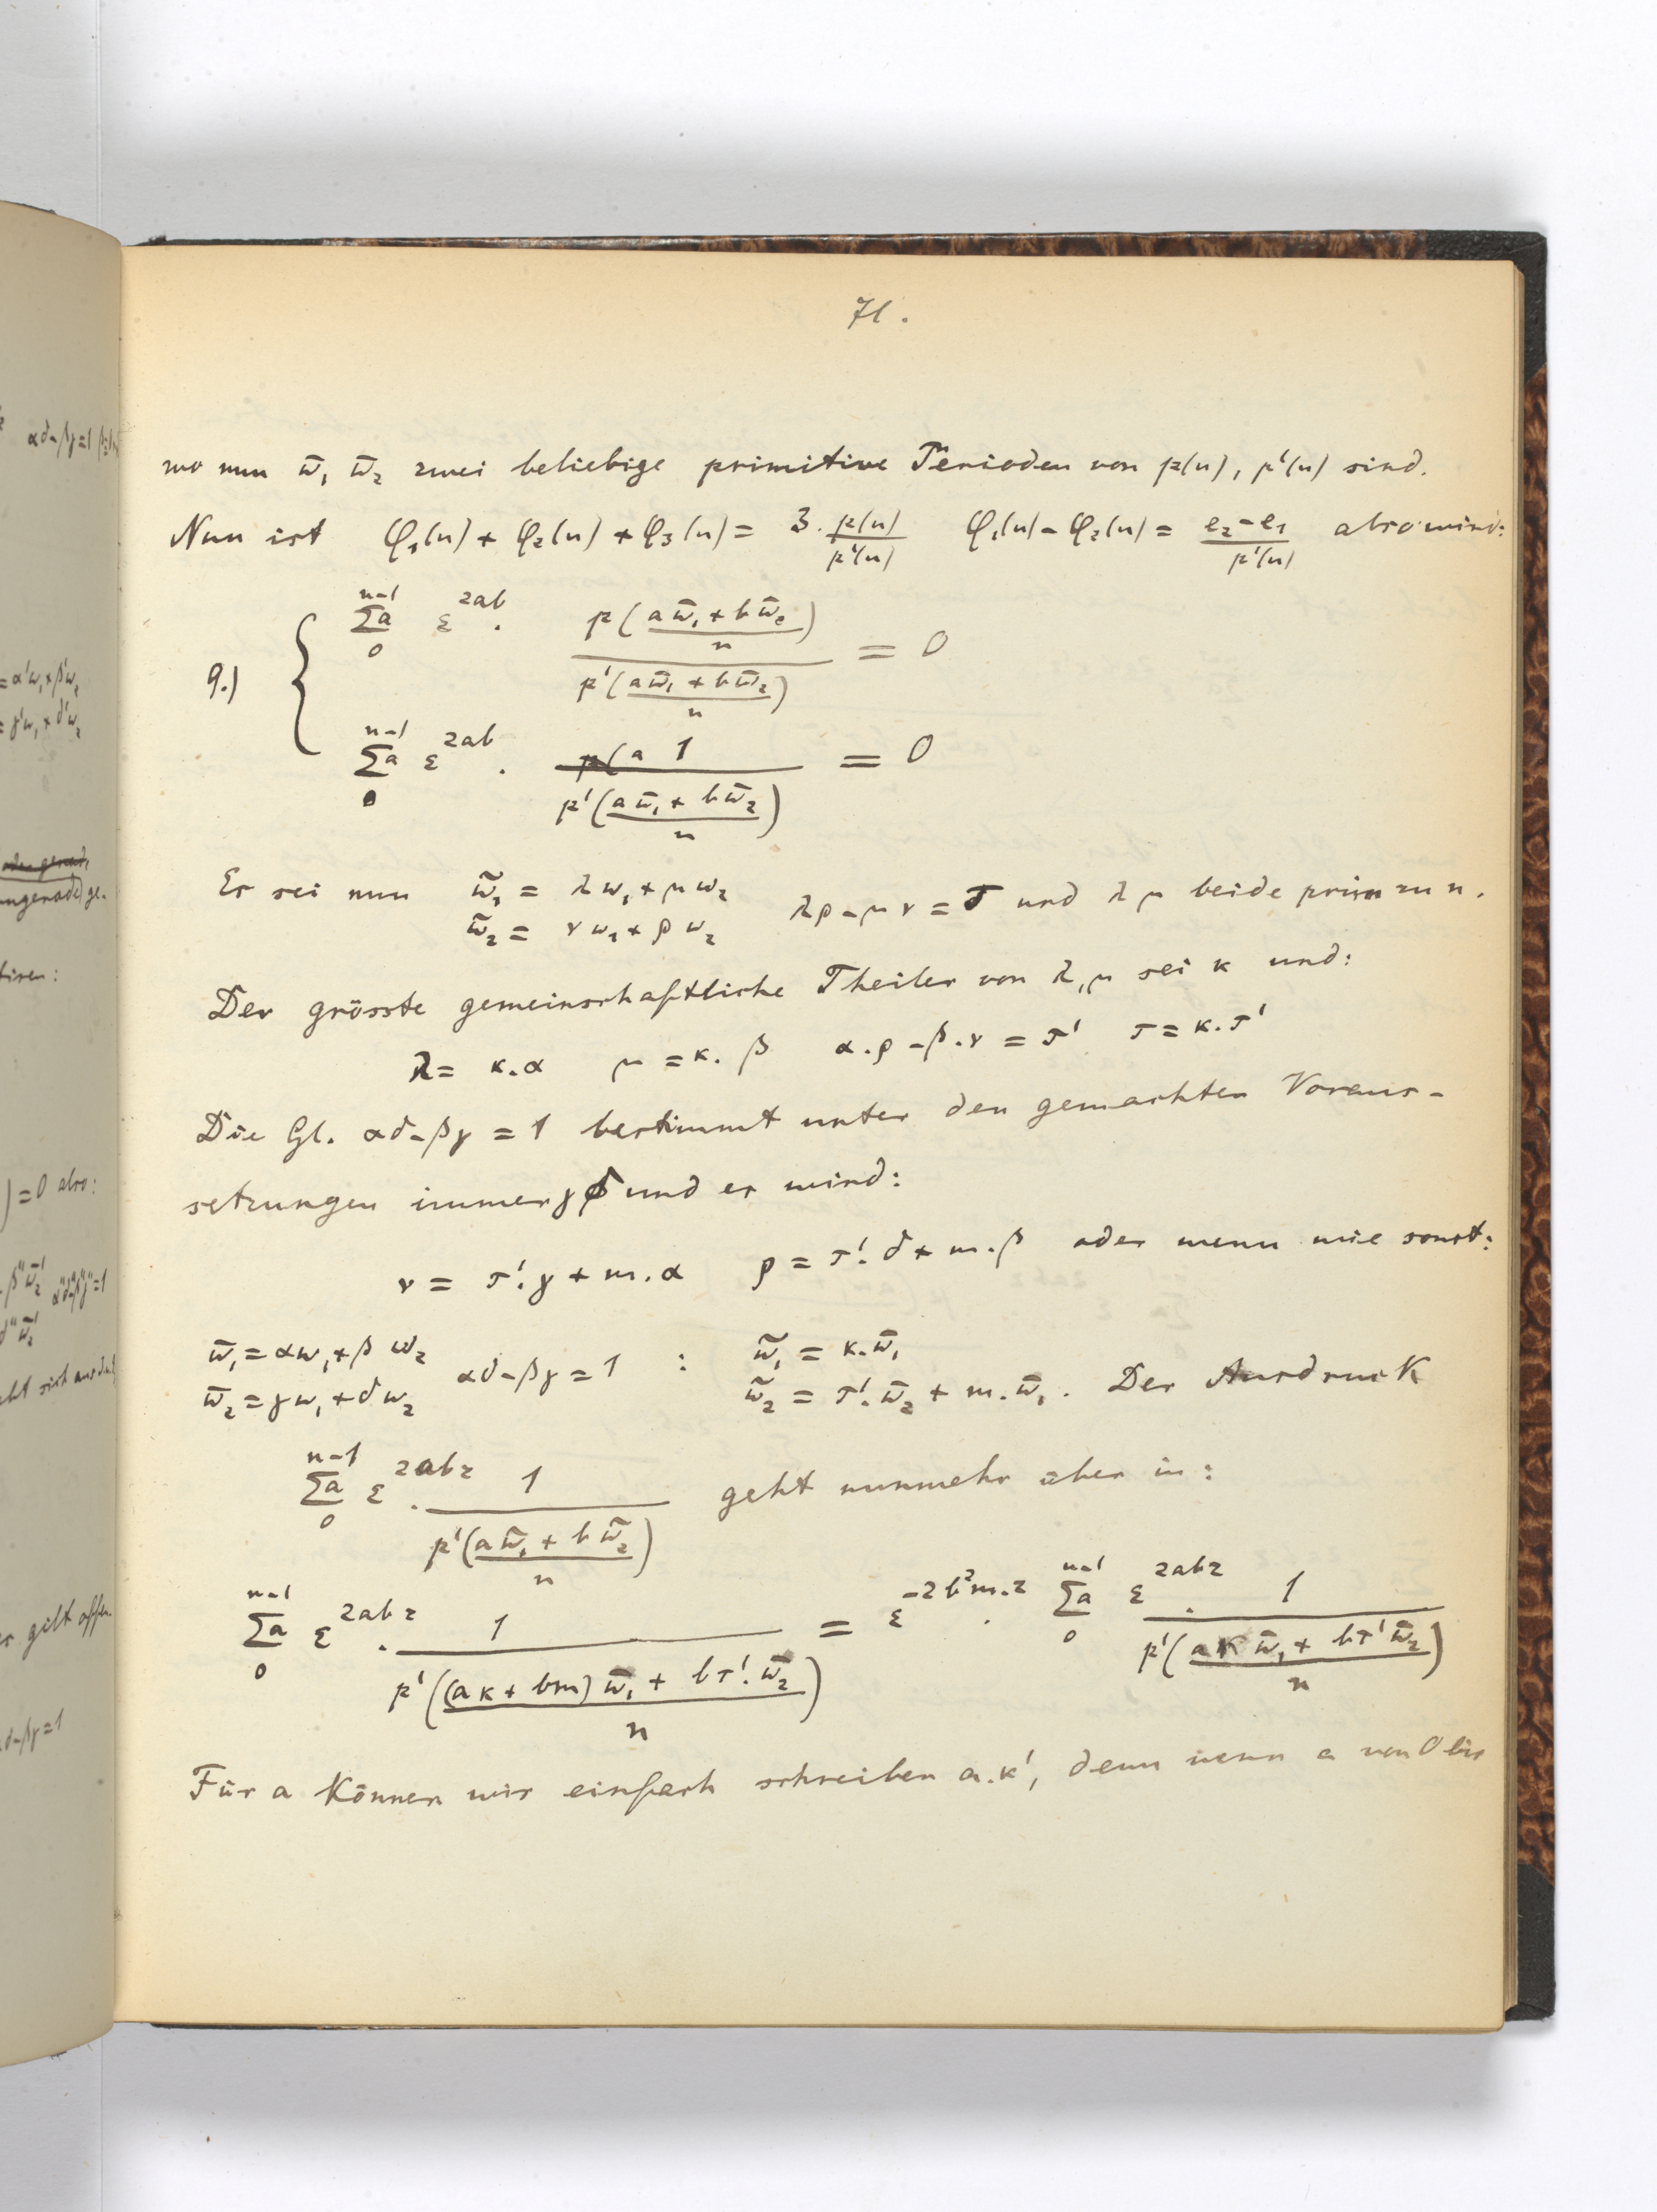 71.
wo nun ω̄₁ ω̄₂ zwei beliebige primitive Perioden von p(u), p'(u) sind.
Nun ist φ₁(u) + φ₂(u) + φ₃(u) = 3. p(u)/p'(u)   φ₁(u) - φ₂(u) = (e₂-e₁)/p'(u) also wird:
9.) { Σa₀ⁿ⁻¹ ε^{2ab} . p((aω̄₁+bω̄₂)/n) / p'((aω̄₁+bω̄₂)/n) = 0
Σa₀ⁿ⁻¹ ε^{2ab} . 1 / p'((aω̄₁+bω̄₂)/n) = 0
Es sei nun ω̃₁ = λω₁+μω₂   λρ-μν = τ und λ μ beide prim zu n.
ω̃₂ = νω₁+ρω₂
Der grösste gemeinschaftliche Theiler von λ,μ sei κ und:
λ = κ.α   μ = κ.β   α.ρ-β.ν = τ'   τ = κ.τ'
Die Gl. αδ-βγ = 1 bestimmt unter den gemachten Voraus-
setzungen immer γ δ und es wird:
ν = τ'.γ + m.α   ρ = τ'.δ + m.β oder wenn wie sonst:
ω̄₁ = αω₁+βω₂   αδ-βγ = 1 : ω̃₁ = κ.ω̄₁
ω̄₂ = γω₁+δω₂   ω̃₂ = τ'.ω̄₂ + m.ω̄₁. Der Ausdruck
Σa₀ⁿ⁻¹ ε^{2abz} . 1 / p'((aω̃₁+bω̃₂)/n) geht nunmehr über in:
Σa₀ⁿ⁻¹ ε^{2abz} . 1 / p'(((aκ+bm)ω̄₁ + bτ'.ω̄₂)/n) = ε^{-2b²m.z} . Σa₀ⁿ⁻¹ ε^{2abz} . 1 / p'((aκω̄₁ + bτ'ω̄₂)/n)
Für a können wir einfach schreiben a.κ', denn wenn a von 0 bis